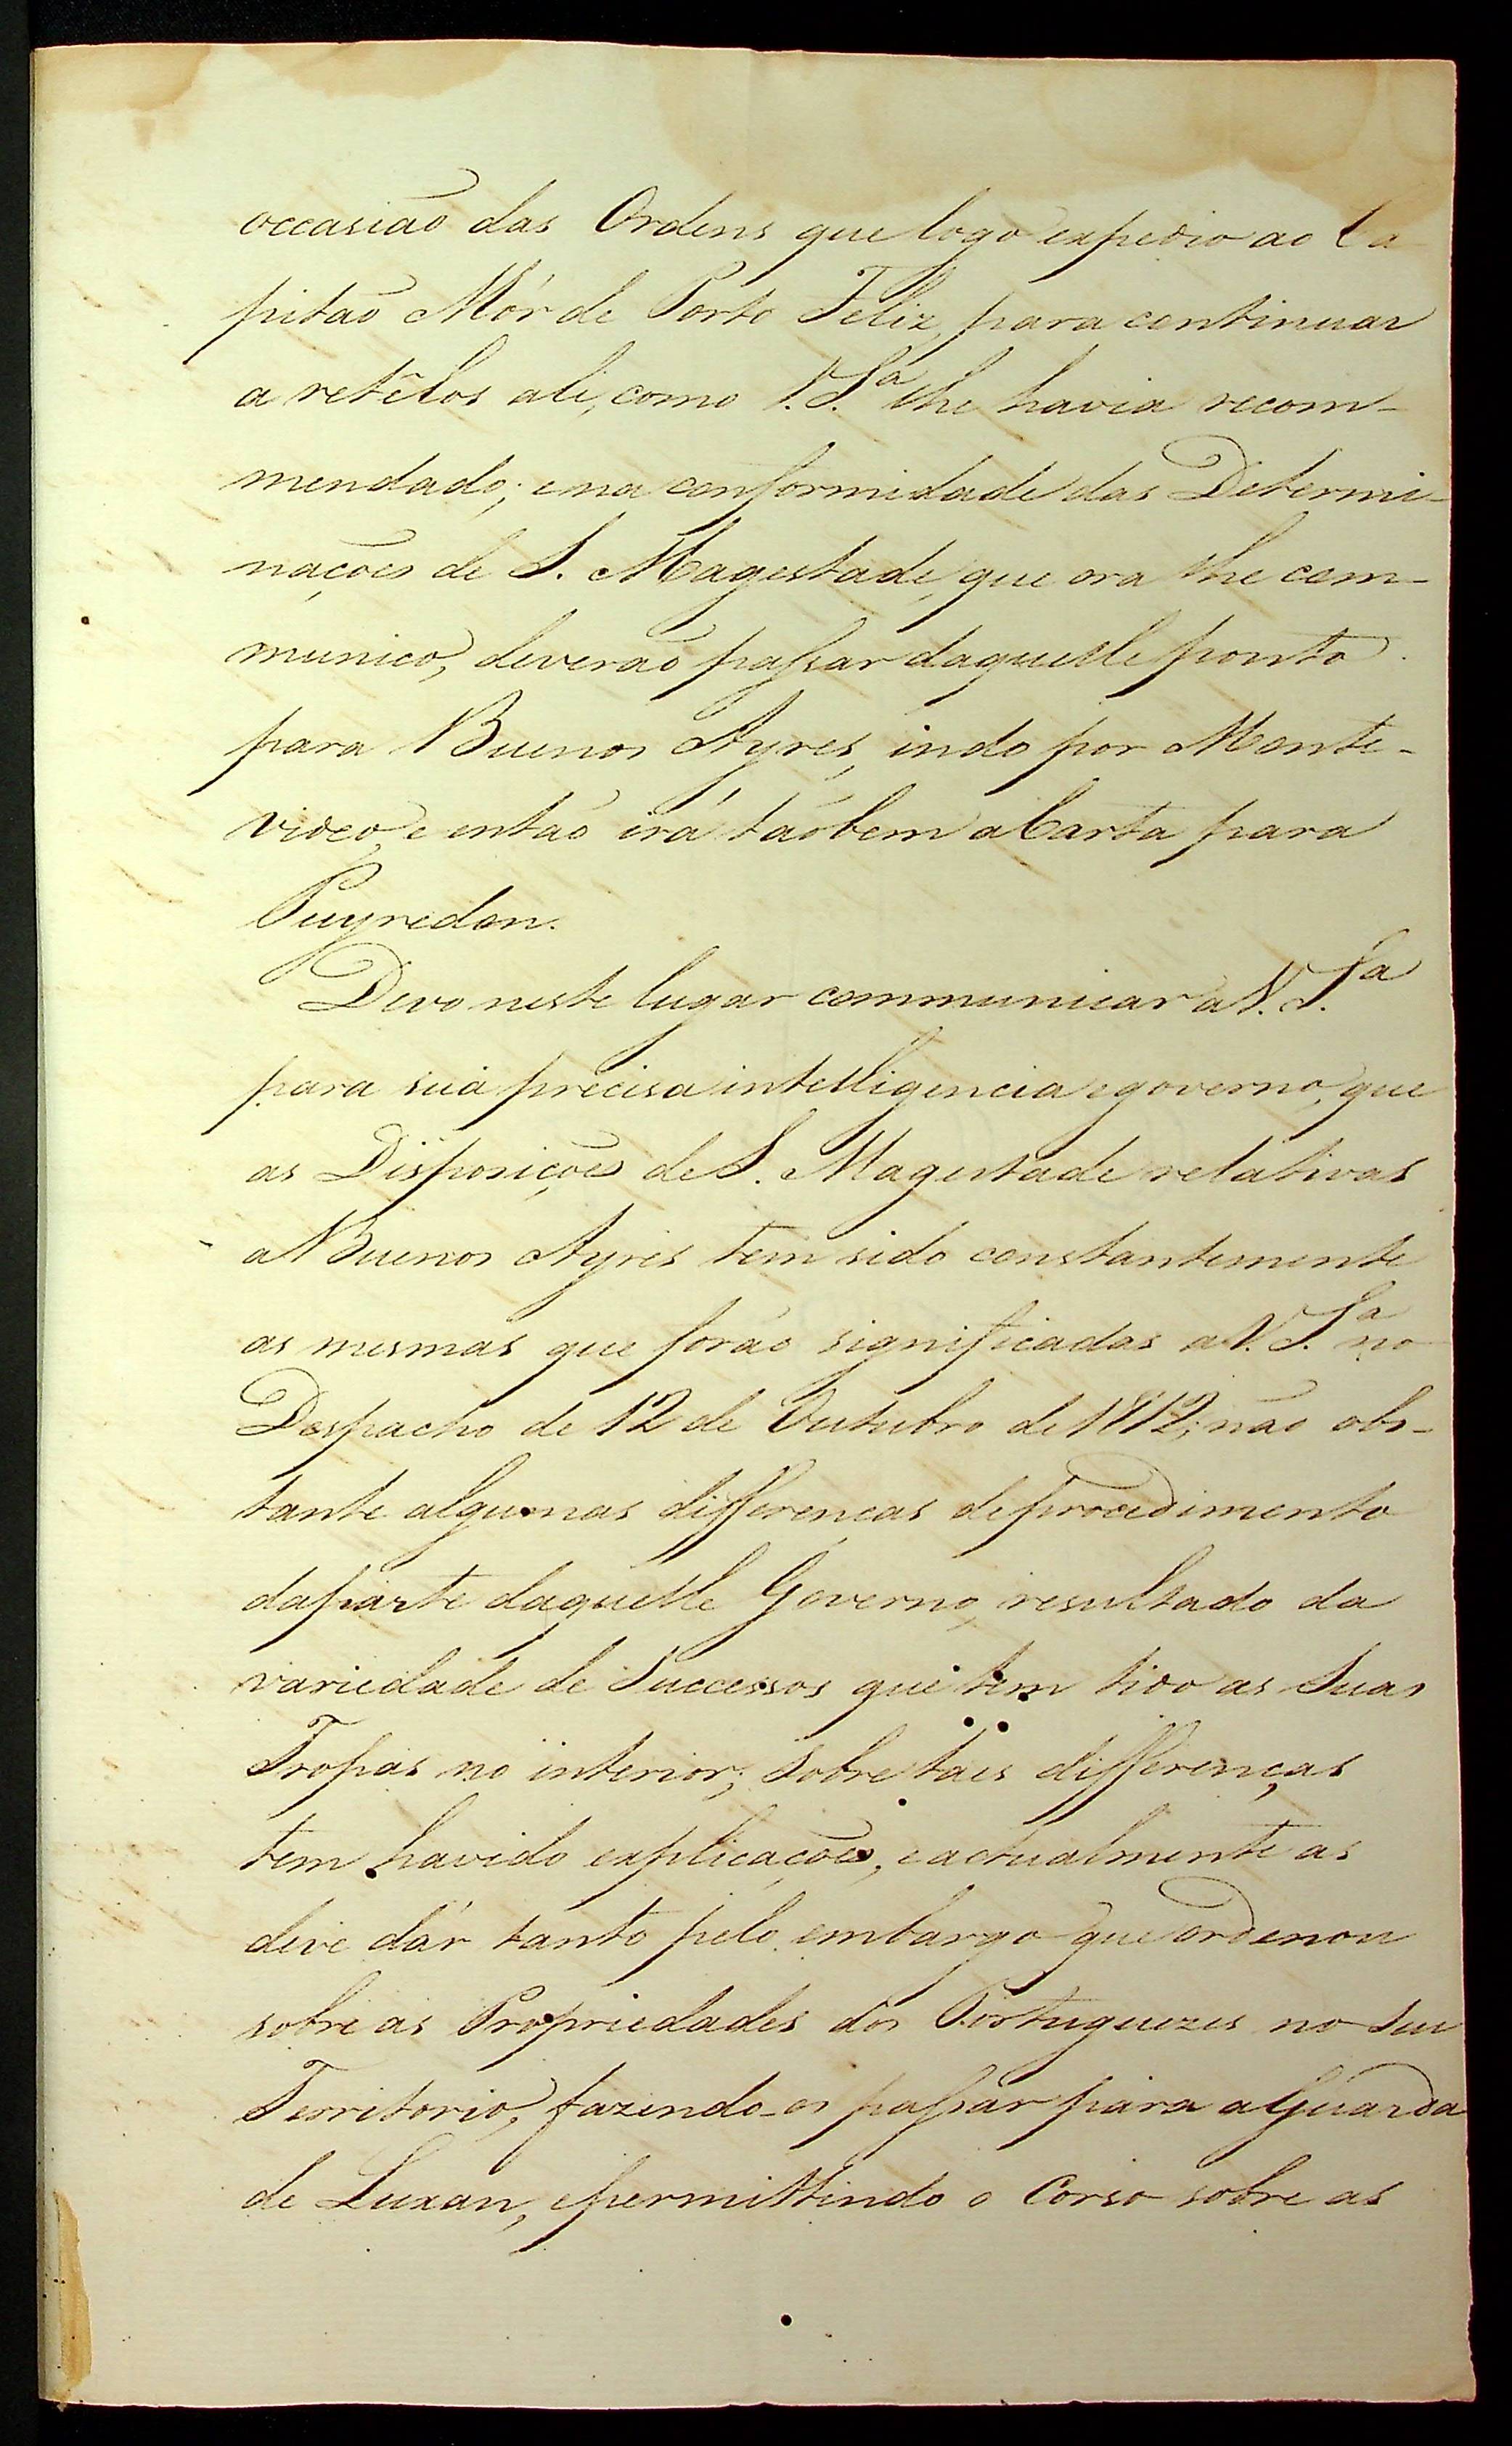 occasião das Ordens que logo expedio ao Ca
pitão Mór de Porto Feliz, para continuar
a retêlos ali, como V. S.ª lhe havia recom-
mendado; e na conformidade das Determi-
nações de S. Magestade, que ora lhe com-
munico, deverão passar daquelle ponto
para Buenos Ayres, indo por Monte-
video, e então irá tãobem a Carta para
Puyredon.
Devo neste lugar communicar a V. S.ª
para sua precisa intelligencia e governo, que
as Disposições de S. Magestade relativas
a Buenos Ayres tem sido constantemente
as mesmas que forão significadas a V. S.ª no
Despacho de 12 de Outubro de 1812; não obs-
tante algumas differenças de procedimento
da parte daquelle Governo, resultado da
variedade de Successos que tem tido as Suas
Tropas no interior; Sobre taes differenças
tem havido explicações, e actualmente as
deve dár tanto pelo embargo que ordenou
sobre as Propriedades dos Portuguezes no Seu
Territorio, fazendo-os passar para a Guarda
de Luxan, e permittindo o Corso sobre as